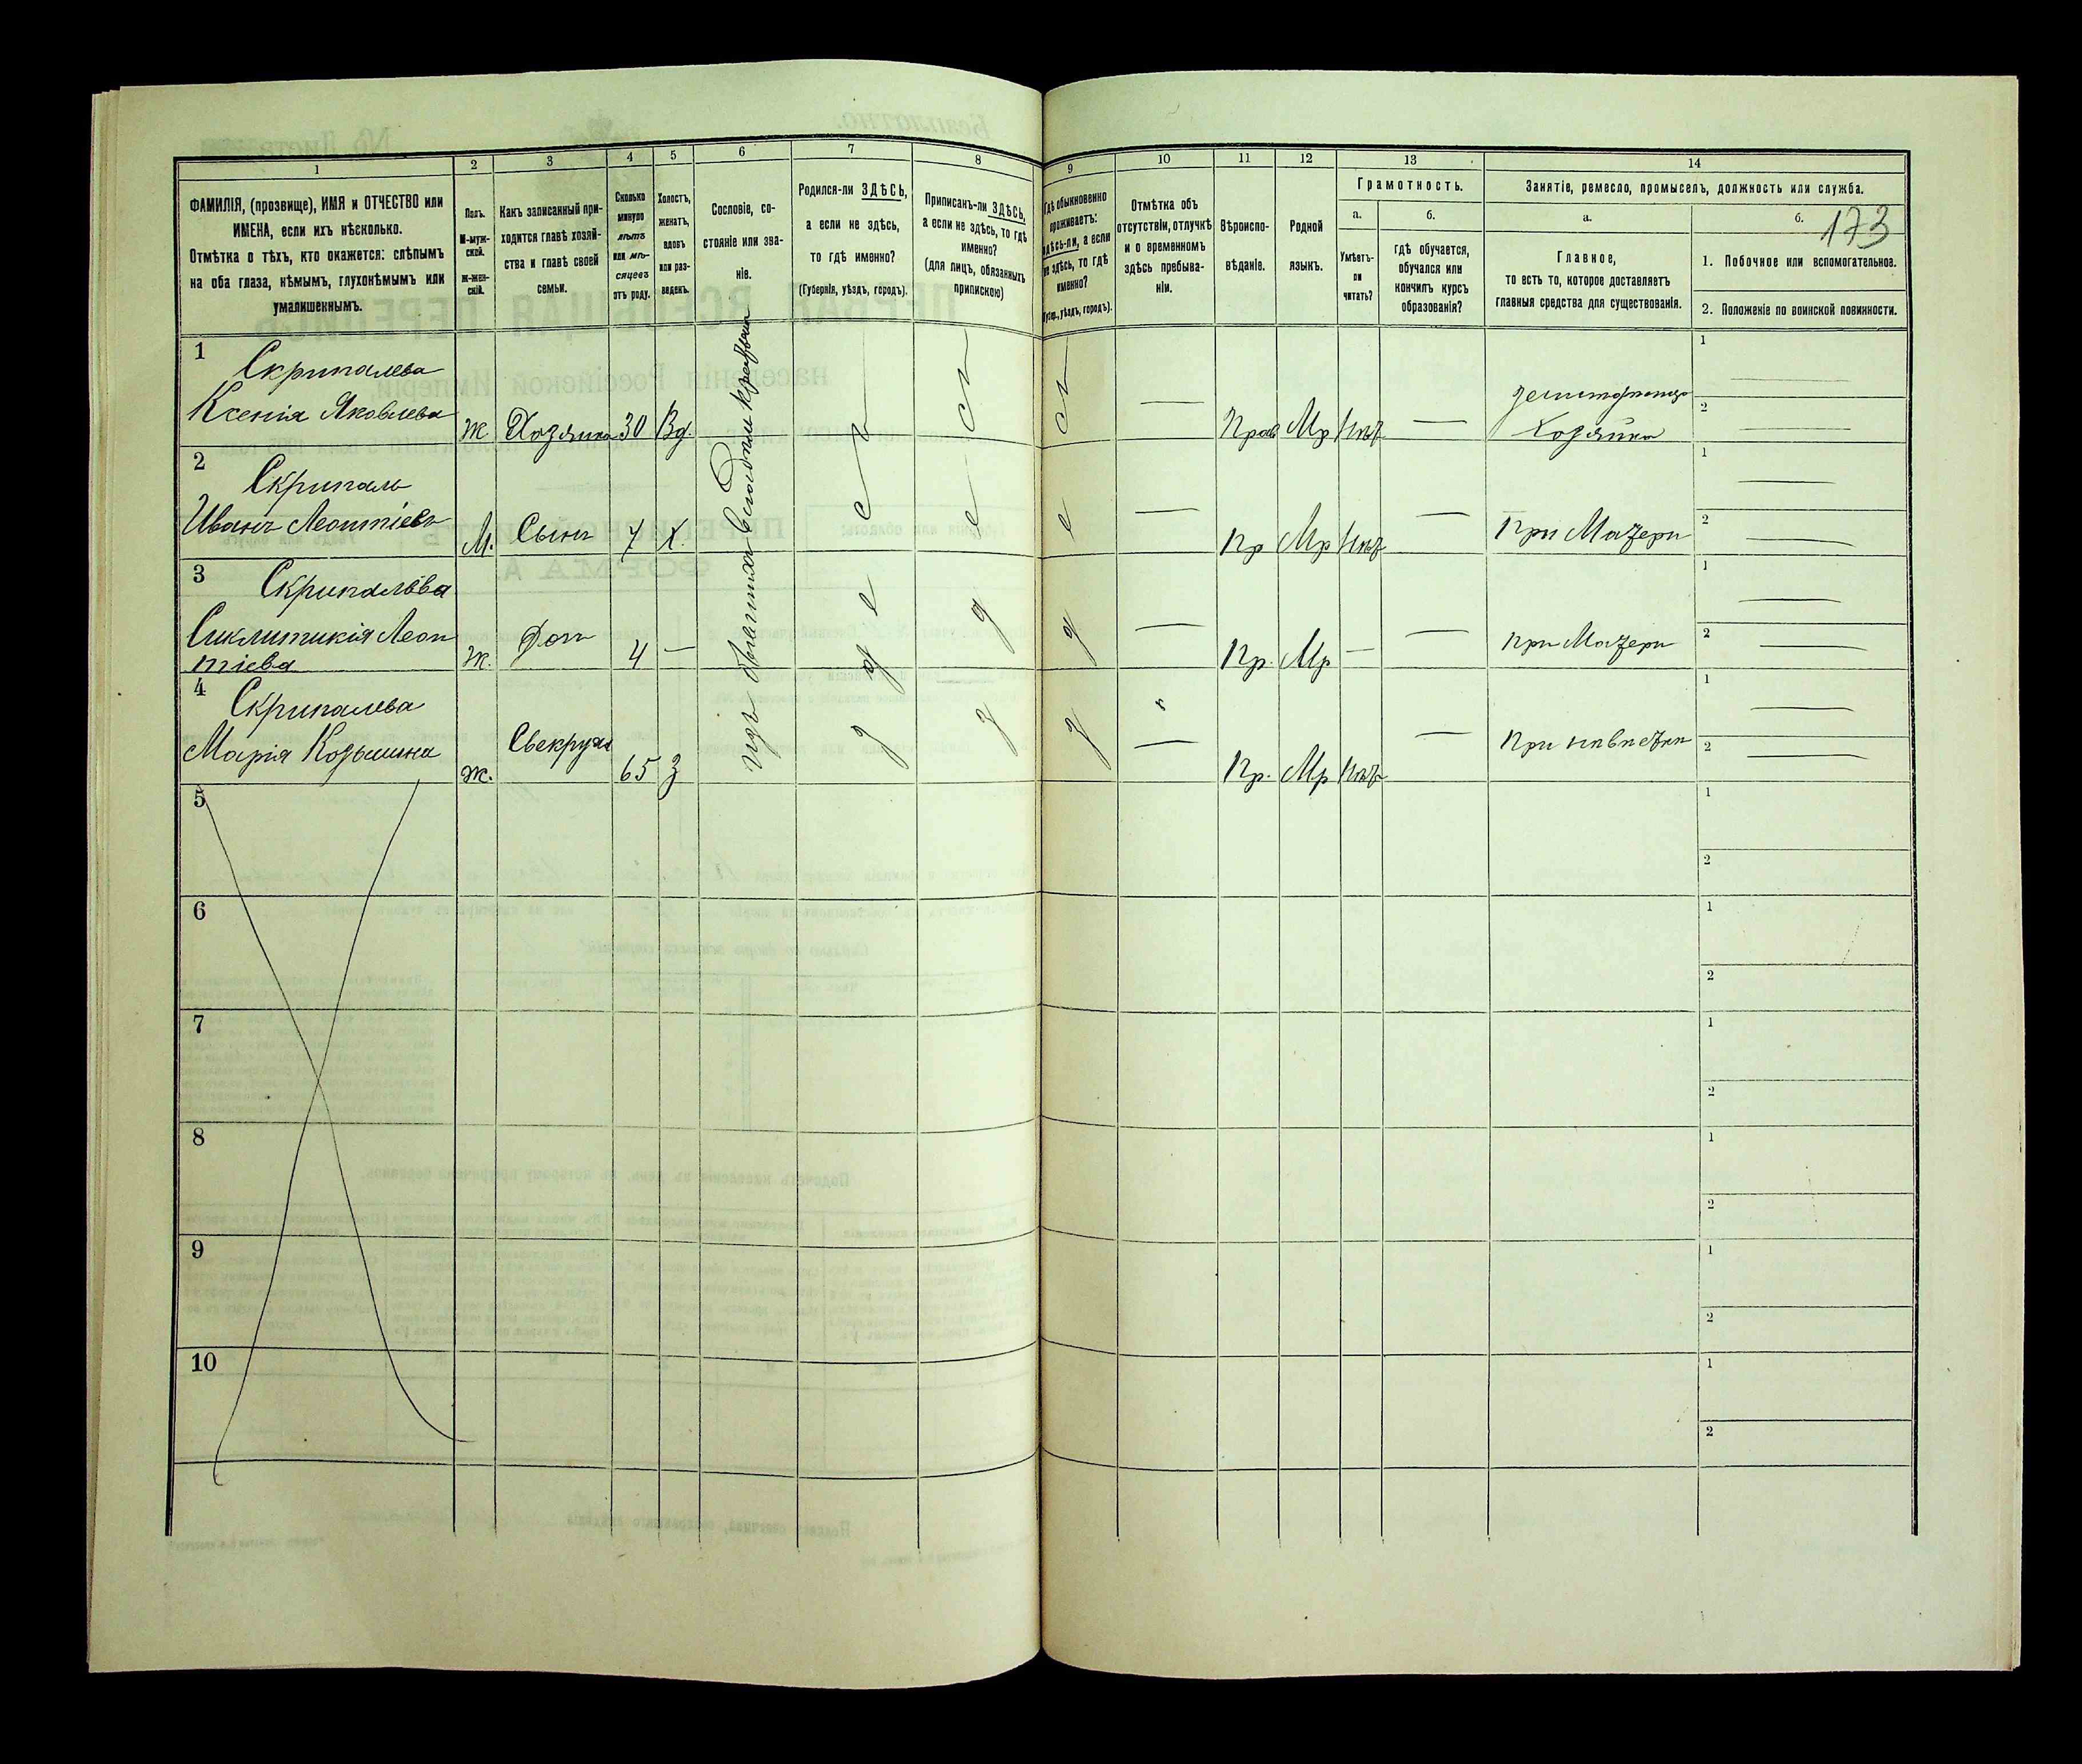 1
2
3
4
5
6
7
8
9
10
11
12
13
14
ФАМИЛІЯ, (прозвище), ИМЯ и ОТЧЕСТВО или
ИМЕНА, если ихъ нѣсколько.
Отмѣтка о тѣхъ, кто окажется: слѣпымъ
на оба глаза, нѣмымъ, глухонѣмымъ или
умалишеннымъ.
Полъ.
М-муж-
ской.
Ж-жен-
скій.
Какъ записанный при-
ходится главѣ хозяй-
ства и главѣ своей
семьи.
Сколько
минуло
лѣтъ
или мѣ-
сяцевъ
отъ роду.
Холостъ,
женатъ,
вдовъ
или раз-
веденъ.
Сословіе, со-
стояніе или зва-
ніе.
Родился-ли ЗДѢСЬ,
а если не здѣсь,
то гдѣ именно?
(Губернія, уѣздъ, городъ).
Приписанъ-ли ЗДѢСЬ,
а если не здѣсь, то гдѣ
именно?
(для лицъ, обязанныхъ
припискою)
Гдѣ обыкновенно
проживаетъ:
здѣсь-ли, а если
не здѣсь, то гдѣ
именно?
(Губер., уѣздъ, городъ).
Отмѣтка объ
отсутствіи, отлучкѣ
и о временномъ
здѣсь пребыва-
ніи.
Вѣроиспо-
вѣданіе.
Родной
языкъ.
Грамотность.
а.
Умѣетъ-
ли
читать?
б.
гдѣ обучается,
обучался или
кончилъ курсъ
образованія?
Занятіе, ремесло, промыселъ, должность или служба.
а.
Главное,
то есть то, которое доставляетъ
главныя средства для существованія.
б.
173
1. Побочное или вспомогательное.
2. Положеніе по воинской повинности.
1
Скрипалева
Ксенія Яковлева
Ж
Хозяйка
30
Вд.
здесь
Прав
Мр
Нѣт
Хозяйка
1
2
2
Скрипаль
Иванъ Леонтіевъ
М.
Сынъ
7
Х.
Пр
Мр
Нѣт
При Матери
1
2
3
Скрипалѣва
Сиклитикія Леон
тіева
Ж.
Дочь
4
—
Пр.
Мр
—
при Матери
1
2
4
Скрипалева
Марія Козьмина
Ж.
Свекруха
65
З
Пр.
Мр
Нѣт
1
2
5
1
2
6
1
2
7
1
2
8
1
2
9
1
2
10
1
2